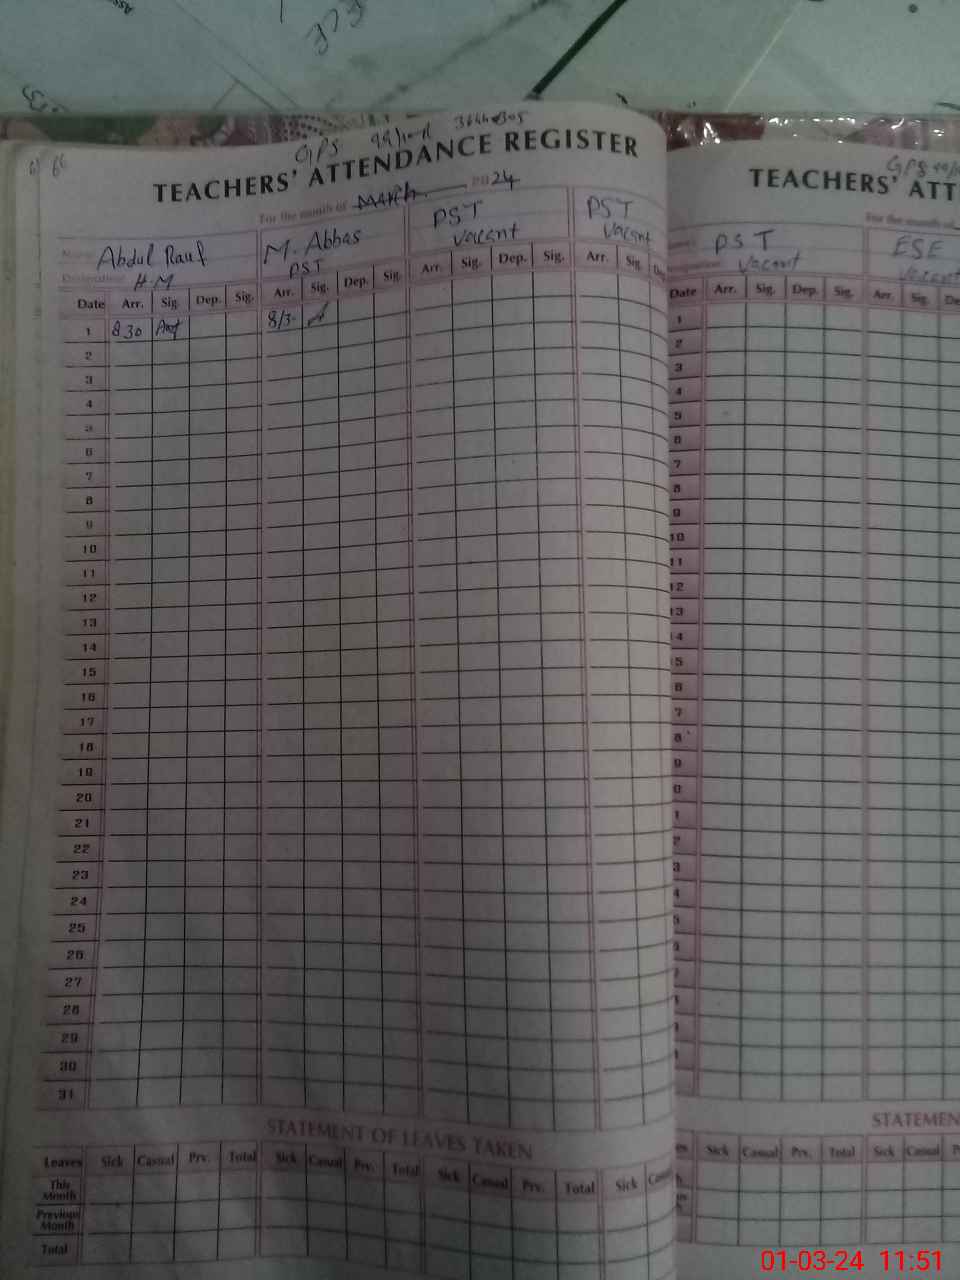 GPS
TEACHERS' ATTENDANCE REGISTER
For the month of March 2024
Name Abdul Rauf M. Abbas PST Vacant PST Vacant
Designation H M PST
Date Arr. Sig. Dep. Sig. Arr. Sig. Dep. Sig. Arr. Sig. Dep. Sig. Arr. Sig.
1 8 30 8/3
2
3
4
5
6
7
8
9
10
11
12
13
14
15
16
17
18
19
20
21
22
23
24
25
26
27
28
29
30
31
STATEMENT OF LEAVES TAKEN
Leaves Sick Casual Prv. Total Sick Casual Prv. Total Sick Casual Prv. Total Sick
This Month
Previous Month
Total
GPS
TEACHERS' ATT
For the month of
PST Vacant ESE Vacant
Date Arr. Sig. Dep. Sig. Arr. Sig.
1
2
3
4
5
6
7
8
9
10
11
12
13
STATEMEN
Sick Casual Prv. Total Sick Casual
01-03-24 11:51